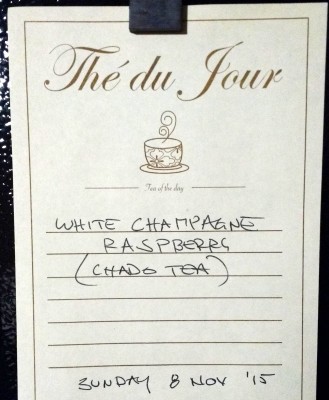 Thé du Jour
Tea of the day
WHITE CHAMPAGNE
RASPBERRY
(CHADO TEA)
SUNDAY 8 NOV '15